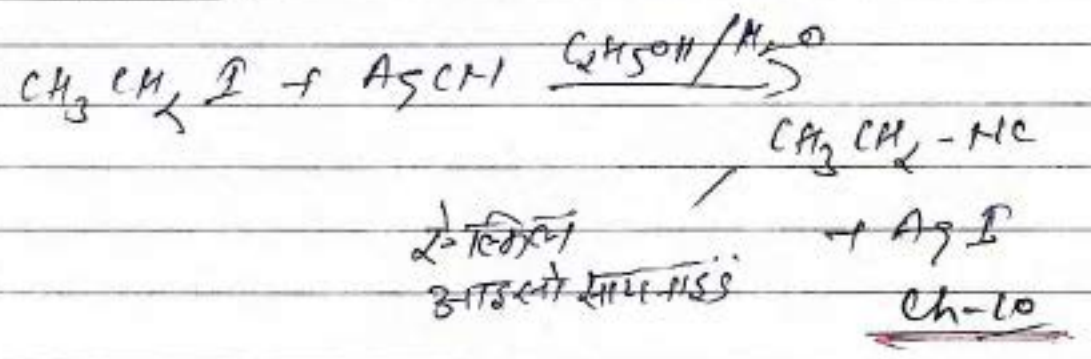 CH₃ CH₂ I + AgCN C₂H₅OH/H₂O →
CH₃ CH₂ - NC
ऐथिल + Ag I
आइसो सायनाइड
Ch-10